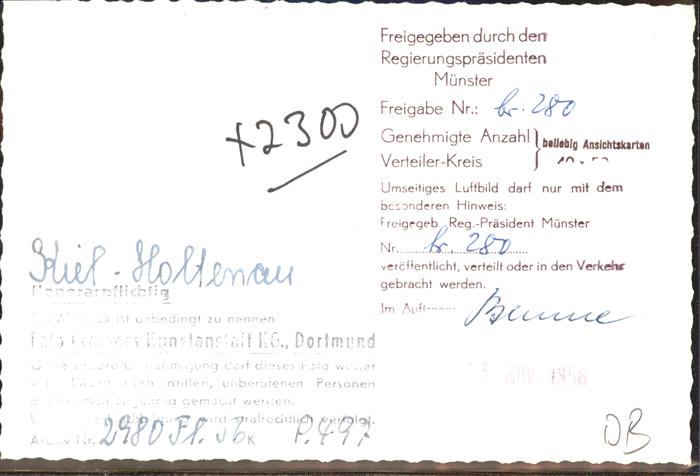 Freigegeben durch den
Regierungspräsidenten
Münster
Freigabe Nr.: br. 280
Genehmigte Anzahl } beliebig Ansichtskarten
Verteiler-Kreis
Umseitiges Luftbild darf nur mit dem
besonderen Hinweis:
Freigegeb. Reg.-Präsident Münster
Nr. br. 280
veröffentlicht, verteilt oder in den Verkehr
gebracht werden.
Im Auft
x2300
Kiel-Holtenau
Honorarpflichtig
ist unbedingt zu nennen
Foto Kunstanstalt KG., Dortmund
Genehmigung darf dieses Foto weder
noch dritten, unberufenen Personen
gemacht werden.
wird strafrechtlich verfolgt.
Archiv Nr. 2980 Fl. 56 K P.497
5 NOV. 1956
DB